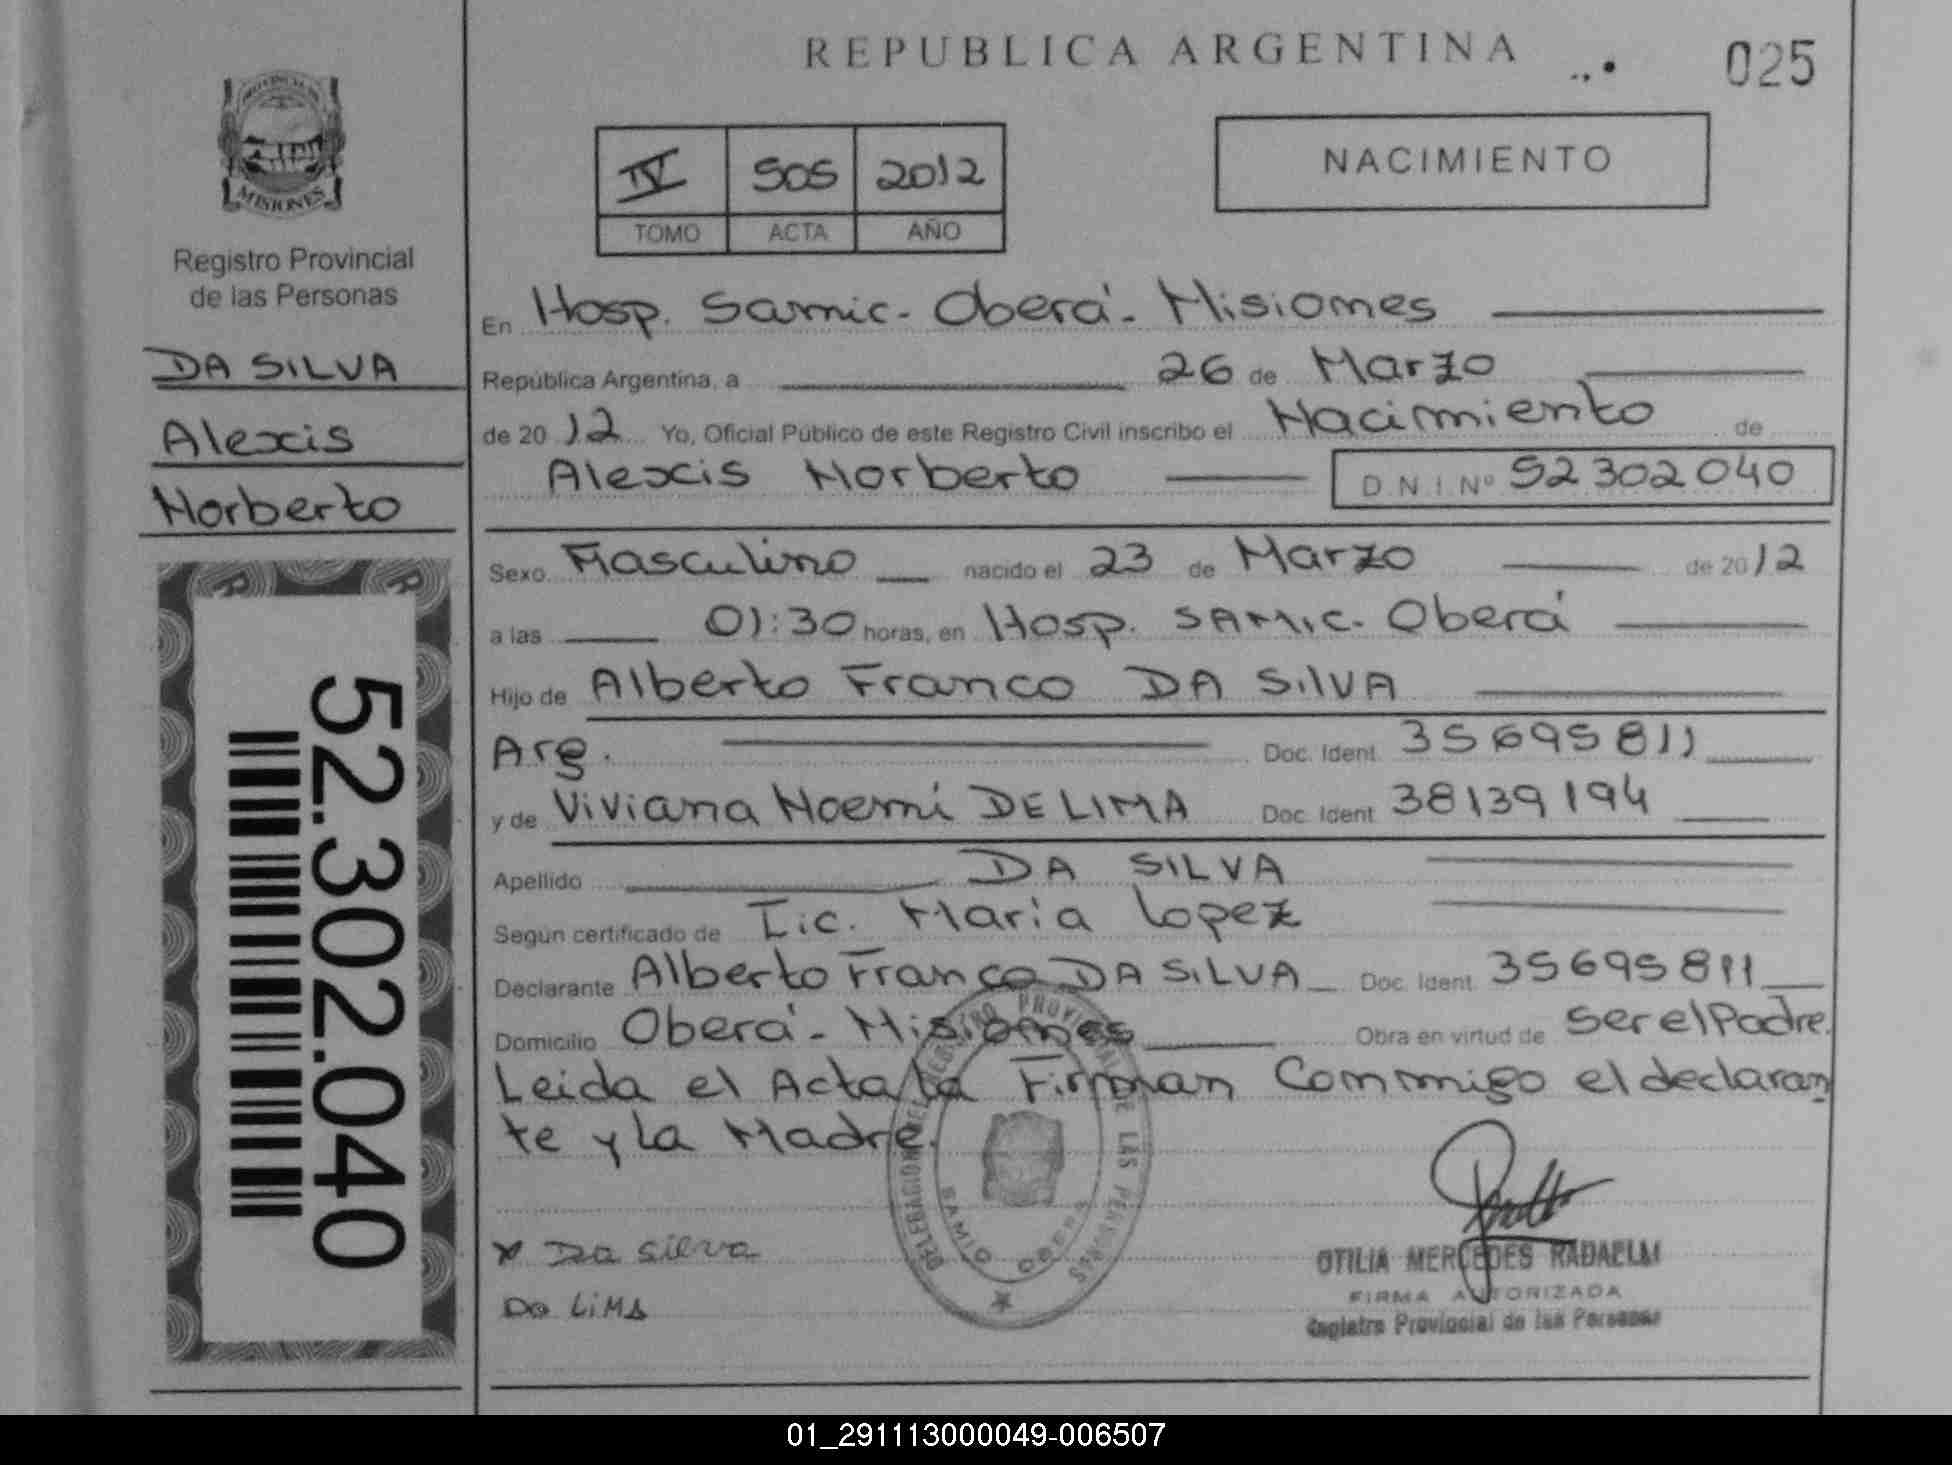 REPUBLICA ARGENTINA
025
PROVINCIA DE
MISIONES
Registro Provincial
de las Personas
DA SILVA
Alexis
Norberto
52.302.040
IV 505 2012
TOMO ACTA AÑO
NACIMIENTO
En Hosp. Samic - Oberá - Misiones
República Argentina, a 26 de Marzo
de 2012 Yo, Oficial Público de este Registro Civil inscribo el Nacimiento de
Alexis Norberto D.N.I. Nº 52302040
Sexo Masculino nacido el 23 de Marzo de 2012
a las 01:30 horas, en Hosp. SAMIC. Oberá
Hijo de Alberto Franco DA SILVA
Arg. Doc. Ident. 35695811
y de Viviana Noemí DE LIMA Doc. Ident 38139194
Apellido DA SILVA
Según certificado de Lic. María Lopez
Declarante Alberto Franco DA SILVA Doc. Ident. 35695811
Domicilio Oberá - Misiones Obra en virtud de ser el Padre.
Leida el Acta la Firman Conmigo el declaran
te y la Madre.
DELEGACION DEL REGISTRO PROVINCIAL DE LAS PERSONAS
SAMIC OBERA
x Da silva
De LiMA
OTILIA MERCEDES RADAELLI
FIRMA AUTORIZADA
Registro Provincial de las Personas
01_291113000049-006507